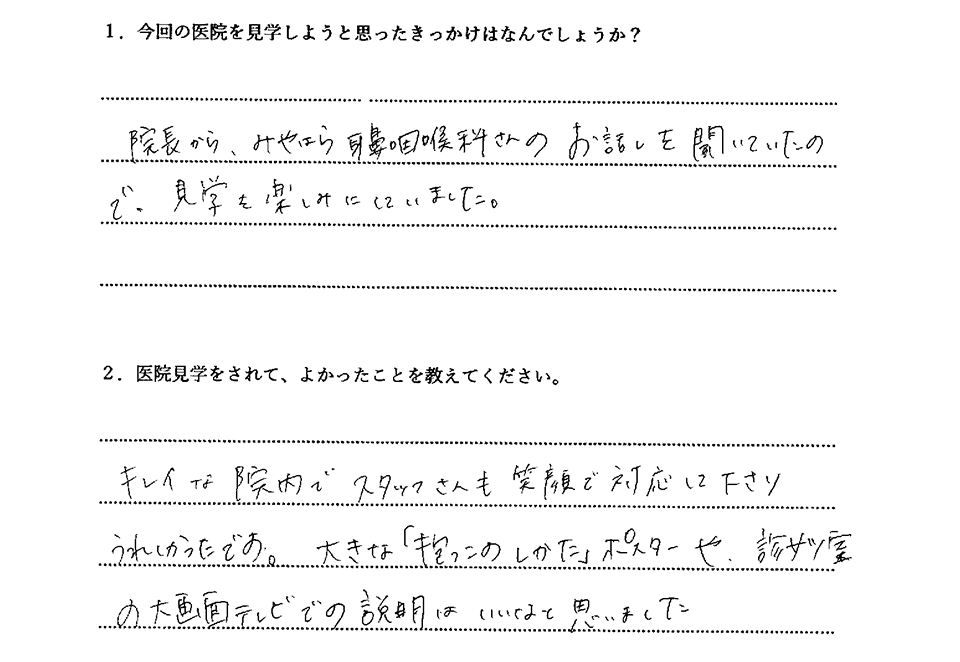 1．今回の医院を見学しようと思ったきっかけはなんでしょうか？
院長から、みやはら耳鼻咽喉科さんのお話しを聞いていたの
で、見学を楽しみにしていました。
2．医院見学をされて、よかったことを教えてください。
キレイな院内でスタッフさんも笑顔で対応して下さり
うれしかったです。大きな「抱っこのしかた」ポスターや、診ザツ室
の大画面テレビでの説明はいいなと思いました